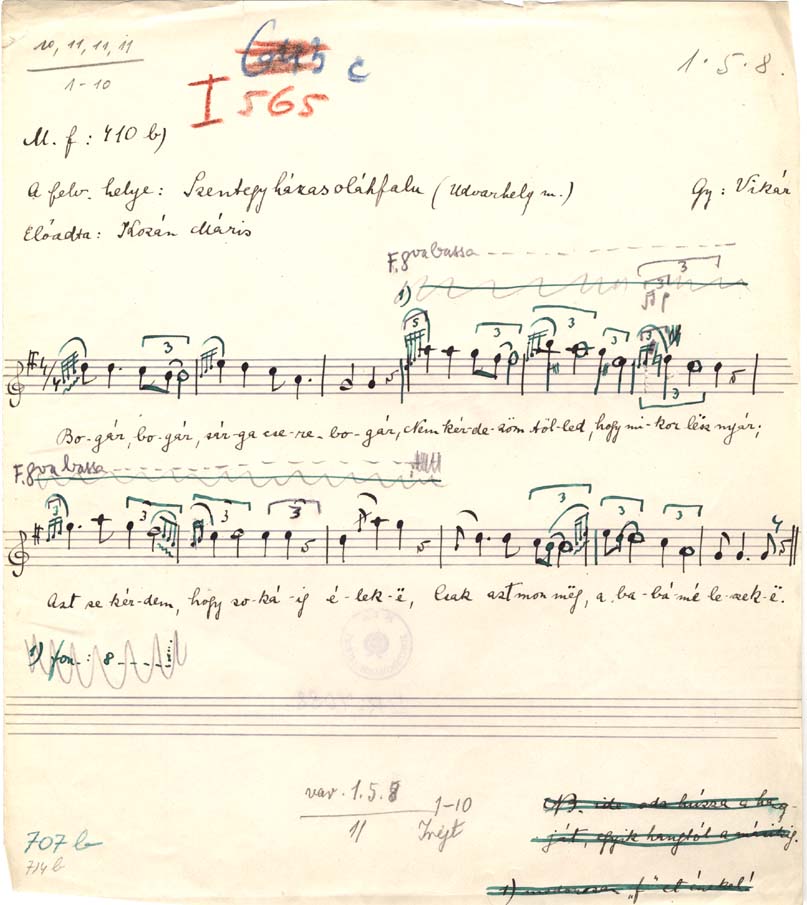 10, 11, 11, 11
1-10
c
I 565
1. 5. 8.
M. f: 410 b)
A felv. helye: Szentegyházasoláhfalu (Udvarhely m.) Gy: Vikár
Előadta: Kozán Máris
F. 8va bassa
1)
Bo-gár, bo-gár, sár-ga cse-re-bo-gár, Nem kér-de-zöm töl-led, hogy mi-kor lösz nyár;
F. 8va bassa
Azt se kér-dem, hogy so-ká-ig é-lek-ë, Csak azt mon mëg, a ba-bá-mé le-szek-ë.
1) fon.: 8
var. 1.5.8
11
1-10
707 b
714 b
NB. ide oda húzza a hang-
ját, egyik hangtól a másikig.
1) "f" et énekel